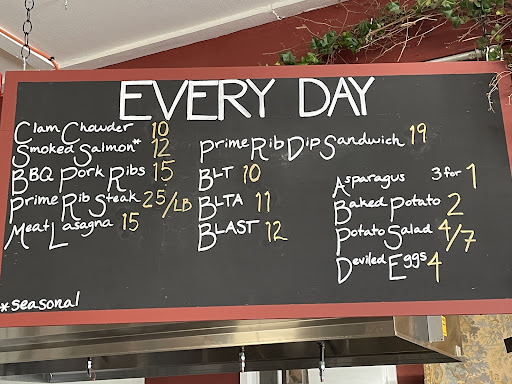 EVERY DAY
Clam Chowder 10
Smoked Salmon* 12
BBQ Pork Ribs 15
Prime Rib Steak 25/LB
Meat Lasagna 15
Prime Rib Dip Sandwich 19
BLT 10
BLTA 11
BLAST 12
Asparagus 3 for 1
Baked Potato 2
Potato Salad 4/7
Deviled Eggs 4
*Seasonal